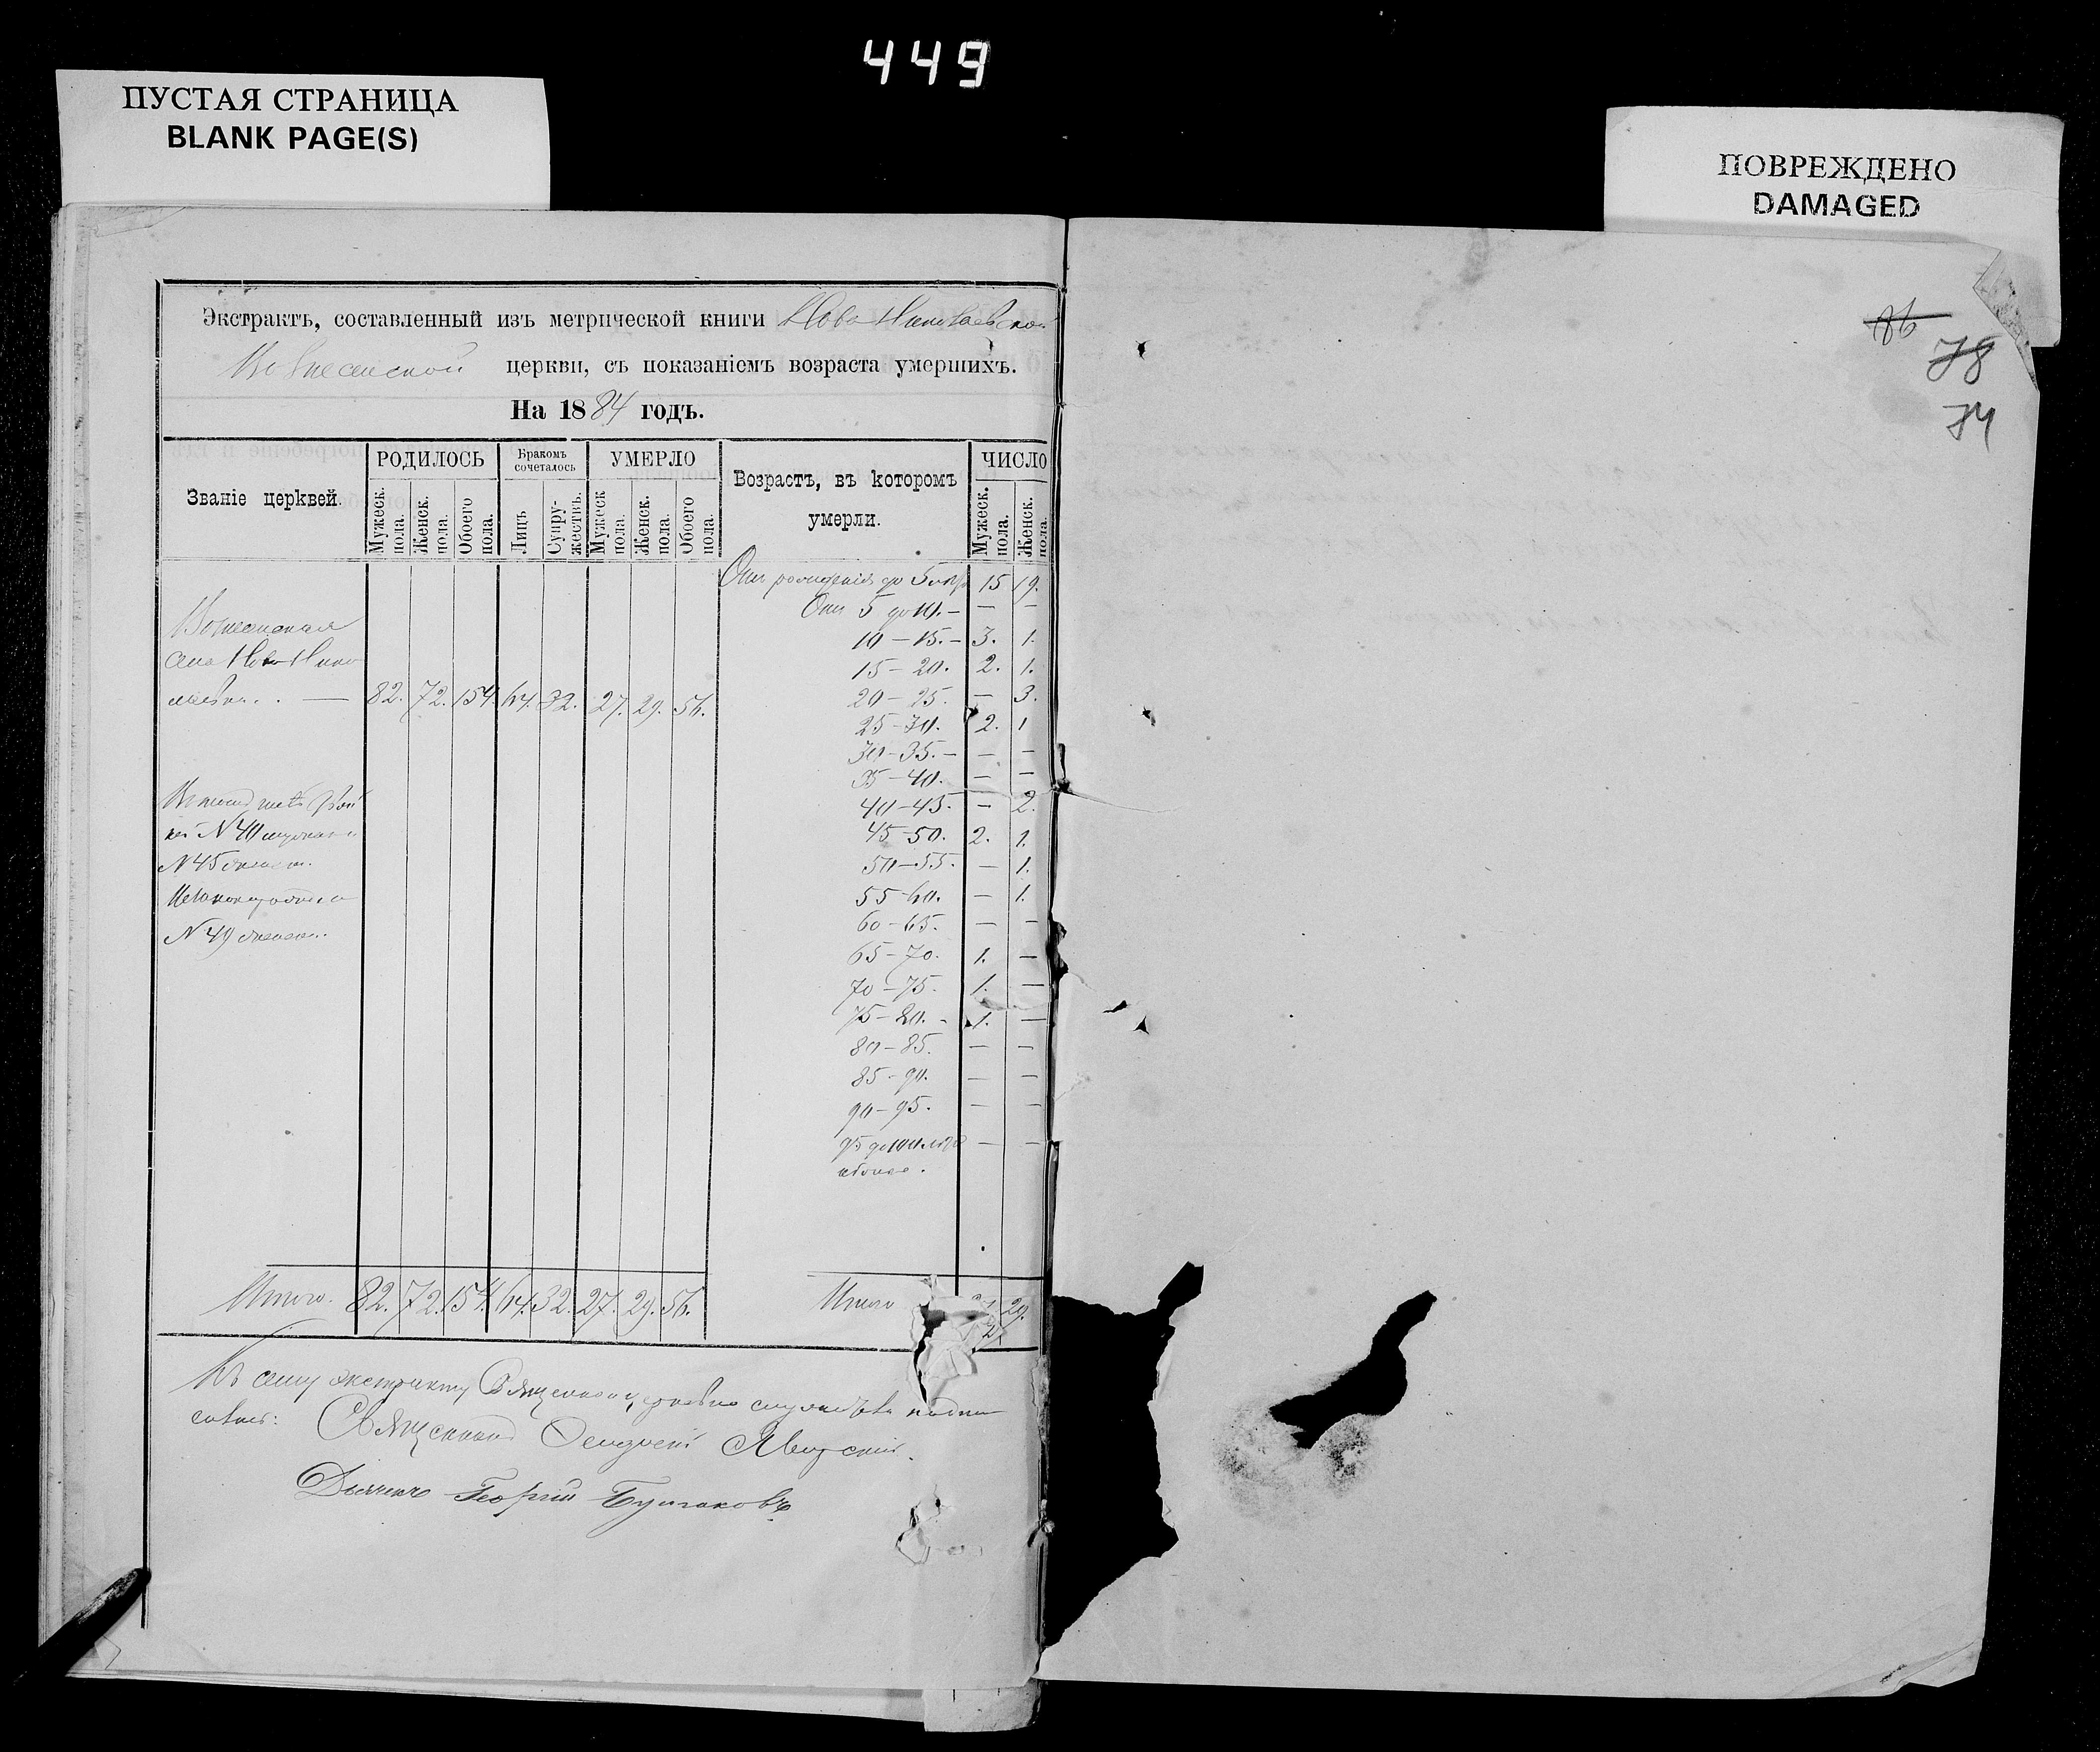 449
ПУСТАЯ СТРАНИЦА
BLANK PAGE(S)
ПОВРЕЖДЕНО
DAMAGED
86
78
74
Экстрактъ, составленный изъ метрической книги Ново Николаевской
Вознесенской церкви, съ показаніемъ возраста умершихъ.
На 1884 годъ.
Званіе церквей.
РОДИЛОСЬ
Мужеск. пола.
Женск. пола.
Обоего пола.
Бракомъ сочеталось
Лицъ
Супружествъ.
УМЕРЛО
Мужеск пола.
Женск. пола.
Обоего пола.
Возрастъ, въ которомъ умерли.
ЧИСЛО
Мужеск. пола.
Женск. пола.
Отъ рожденія до 5 лѣтъ 15 19.
Отъ 5 до 10. — — —
10 — 15. — 3. 1.
15 — 20. 2. 1.
20 — 25. — 3.
25 — 30. 2. 1
30 — 35. — — —
35 — 40. — —
40 — 45. — 2.
45 — 50. 2. 1.
50 — 55. — 1.
55 — 60. — 1.
60 — 65. — —
65 — 70. 1. —
70 — 75. 1. —
75 — 80. - 1. —
80 — 85. — —
85 — 90. — —
90 — 95. — —
95 до 100 лѣтъ — —
и болѣе.
Вознесенская
села Ново Нико
лаевки. . — 82. 72. 154. 64. 32. 27. 29. 56.
№ 40
№ 45
№ 49
Итого. 82. 72. 154. 64. 32. 27. 29. 56.
Итого 27 29.
Къ сему экстракту Священно, церковно служители подпи
сались: Священникъ Яворскій.
Дьячекъ Георгій Булгаковъ